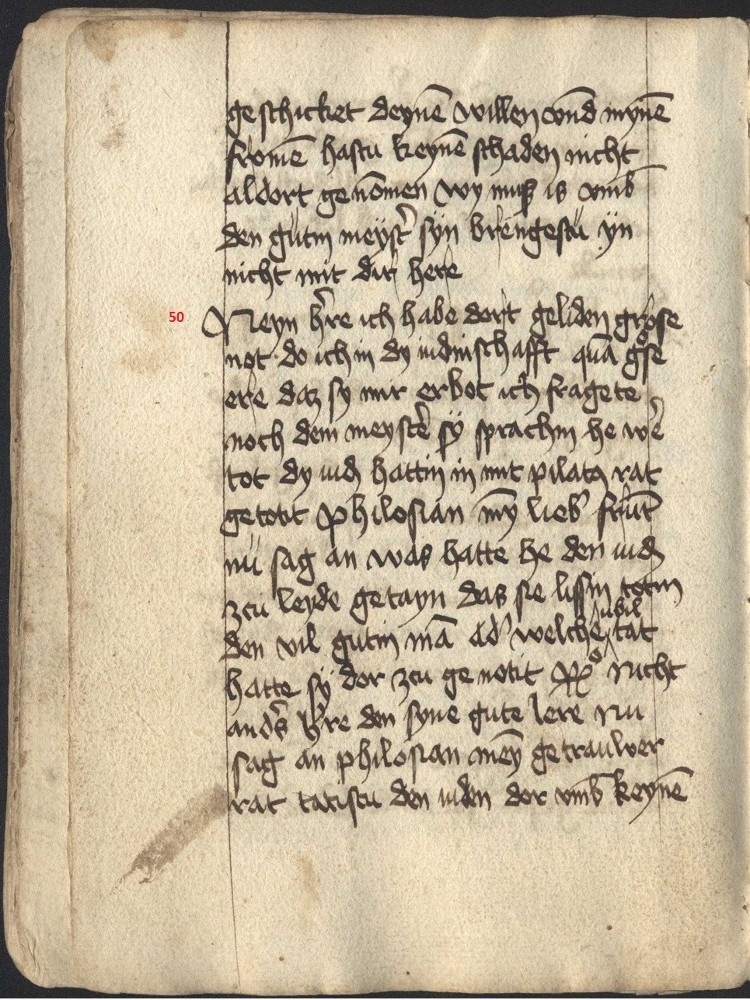 geschicket deynē willen vnd mynē
fromē hastu keynē schaden nicht
aldort genōmen wy mus is vmb
den gutin meystˀ syn brengestu yn
nicht mit dir here
50 Neyn hˀre ich habe dort geliden grose
not do ich in dy iudinschafft quā gˀse
ere daz sy mir erbot ich fragete
noch dem meystˀe sy sprachin he wˀe
tot dy iudꝫ hattin in mit pilatꝯ rat
getotit philosian my̅ liebˀ fru̅t
nu sag an was hatte he den iudꝫ
zcu leyde getayn das sie lissin totin
den vil gutin mā adˀ welche ubil tat
hatte sy dor zcu genotit Rͦ Nicht
andˀs hˀre den syne gute lere Nu
sag an philosian mey̅ getrauwer
rat tatistu den iuden dor vmb keynē